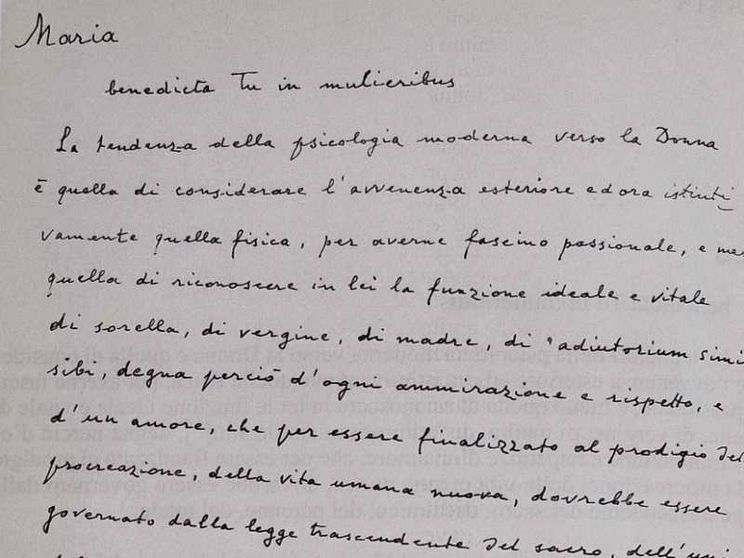 Maria
benedicta Tu in mulieribus
La tendenza della psicologia moderna verso la Donna
è quella di considerare l'avvenenza esteriore ed ora istinti
vamente quella fisica, per averne fascino passionale, e
quella di riconoscere in lei la funzione ideale e vitale
di sorella, di vergine, di madre, di "adiutorium simi
sibi, degna perciò d'ogni ammirazione e rispetto, e
d'un amore, che per essere finalizzato al prodigio del
procreazione, della vita umana nuova, dovrebbe essere
governato dalla legge trascendente del sacro, dell'